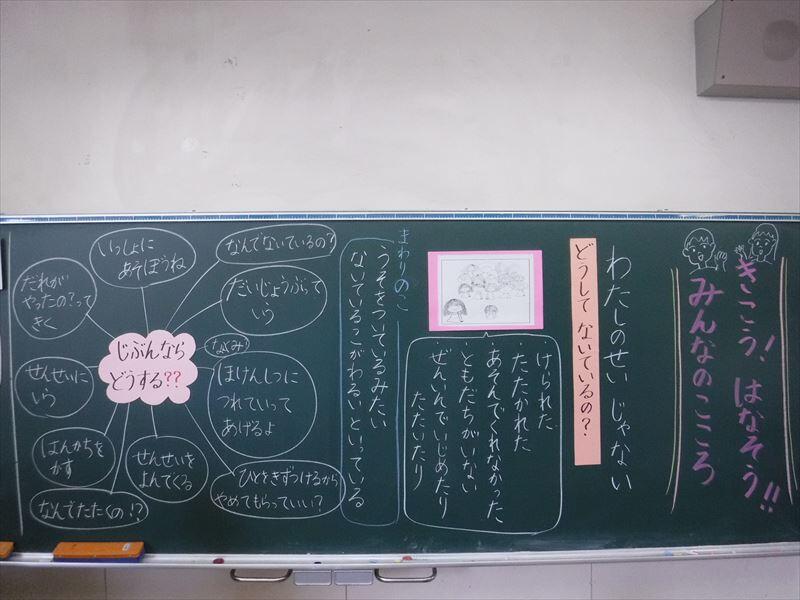 きこう！はなそう!!
みんなのこころ
わたしのせいじゃない
どうして ないているの？
・けられた
・たたかれた
・あそんでくれなかった
・ともだちがいない
・ぜんいんでいじめたり
たたいたり
まわりのこ
うそをついているみたい
ないているこがわるいといっている
じぶんなら
どうする??
なんでないているの？
いっしょに
あそぼうね
だれが
やったの？って
きく
だいじょうぶって
いう
せんせいに
いう
ほけんしつに
つれていって
あげるよ
はんかちを
かす
せんせいを
よんでくる
ひとをきずつけるから
やめてもらっていい？
なんでたたくの!?